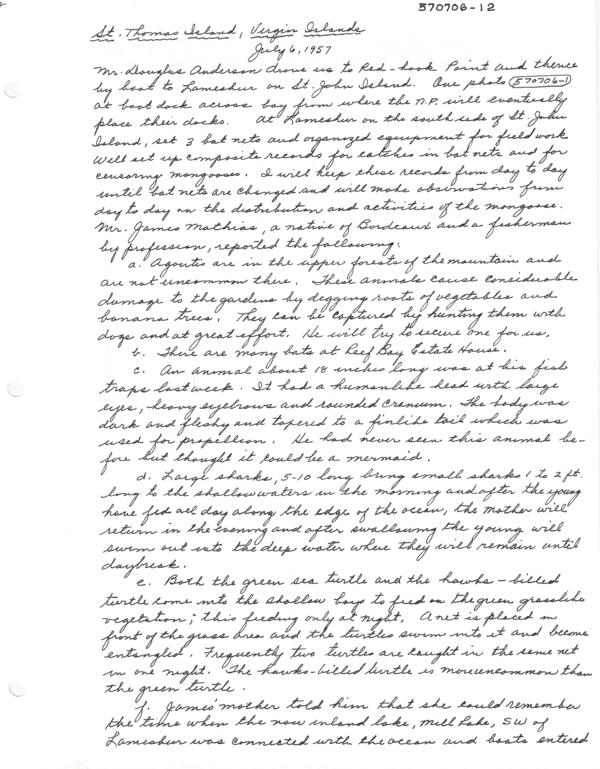 570706-12
St. Thomas Island, Virgin Islands
July 6, 1957
Mr. Douglas Anderson drove us to Red-hook Point and thence
by boat to Lameshur on St. John Island. One photo (570706-1)
at boat dock across bay from where the N.P. will eventually
place their docks. At Lameshur on the south side of St. John
Island, set 3 bat nets and organized equipment for field work
Will set up composite records for catches in bat nets and for
censoring mongooses. I will keep these records from day to day
until bat nets are changed and will make observations from
day to day on the distribution and activities of the mongoose.
Mr. James Mathias, a native of Bordeaux and a fisherman
by profession, reported the following:
a. Agoutis are in the upper forests of the mountain and
are not uncommon there. These animals cause considerable
damage to the gardens by degging roots of vegetables and
banana trees. They can be captured by hunting them with
dogs and at great effort. He will try to secure one for us.
b. There are many bats at Reef Bay Estate House.
c. An animal about 18 inches long was at his fish
traps last week. It had a humanlike head with large
eyes, heavy eyebrows and rounded cranum. The body was
dark and fleshy and tapered to a finlike tail which was
used for propellion. He had never seen this animal be-
fore but thought it could be a mermaid.
d. Large sharks, 5-10 long bring small sharks 1 to 2 ft.
long to the shallow waters in the morning and after the young
have fed all day along the edge of the ocean, the mother will
return in the evening and after swallowing the young will
swim out into the deep water where they will remain until
daybreak.
e. Both the green sea turtle and the hawks-billed
turtle come into the shallow bays to feed on the green grasslike
vegetation; this feeding only at night. A net is placed in
front of the grass area and the turtles swim into it and become
entangled. Frequently two turtles are caught in the same net
in one night. The hawks-billed turtle is more uncommon than
the green turtle.
f. James' mother told him that she could remember
the time when the now inland lake, Mill Lake, SW of
Lameshur was connected with the ocean and boats entered